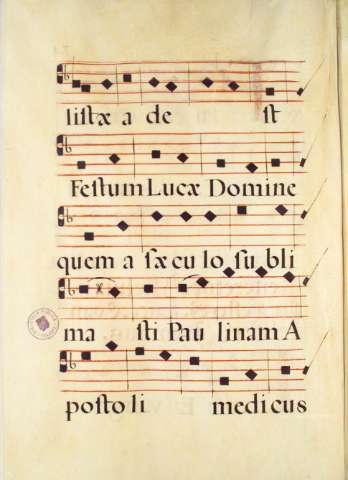 listæ a de st
Festum Lucæ Domine
quem a sæ cu lo su bli
ma sti Pau linam A
posto li medicus